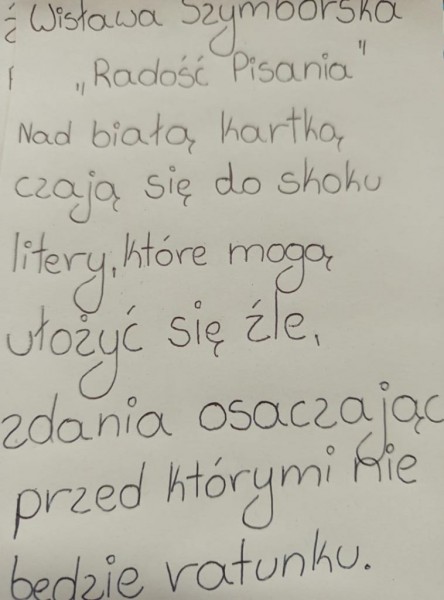 Wisława Szymborska
„Radość Pisania"
Nad białą kartką
czają się do skoku
litery, które mogą
ułożyć się źle,
zdania osaczając
przed którymi nie
będzie ratunku.